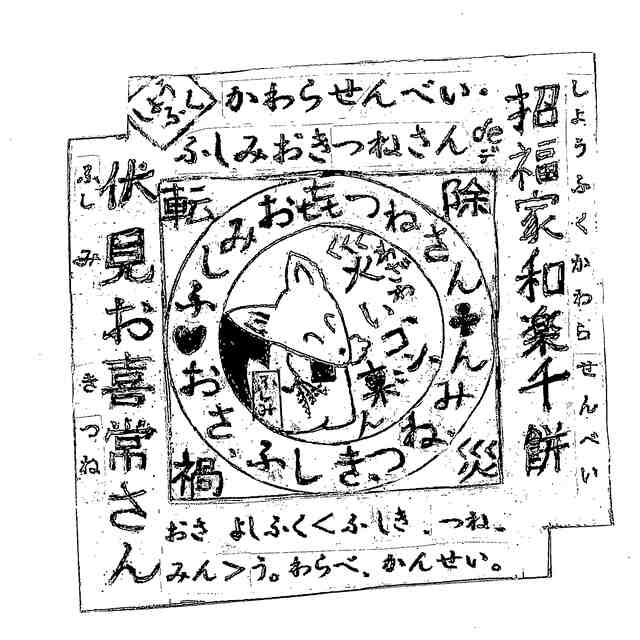 かわらせんべい。
ふしみおきつねさん de
デ
招福家和楽千餅
しようふくかわらせんべい
伏見お喜常さん
ふし み き つね
転 除
禍 災
ふしみおきつねさん
おさ、ふしき、つね、んみ
災い
わざわい
コン
ふしみ
おさ よしふく<ふしき、つね、
みん>う。わらべ、かんせい。